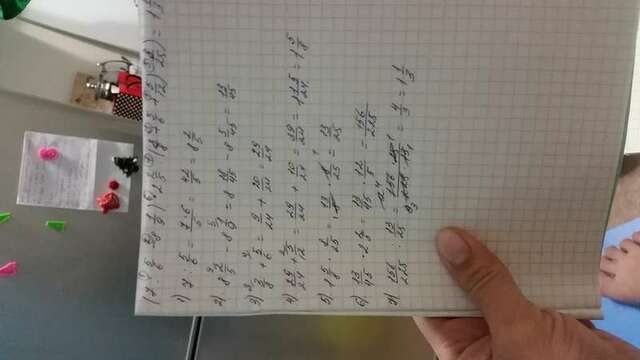 (7 : 5/6 - 8 1/9) · 2 2/5 : ((3/8 + 5/6 + 5/12) · 8/25) = 1 1/3
1) 7 : 5/6 = 7·6/5 = 42/5 = 8 2/5
2) 8 2/5 - 8 1/9 = 8 18/45 - 8 5/45 = 13/45
3) 3/8 + 5/6 = 9/24 + 20/24 = 29/24
4) 29/24 + 5/12 = 29/24 + 10/24 = 39/24 = 1 15/24 = 1 5/8
5) 1 5/8 · 8/25 = 13/8 · 8/25 = 13/25
6) 13/45 · 2 2/5 = 13/45 · 12/5 = 156/225
7) 156/225 : 13/25 = 156 · 25/225 · 13 = 4/3 = 1 1/3